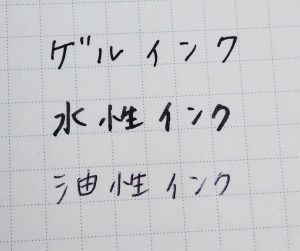 ゲルインク
水性インク
油性インク